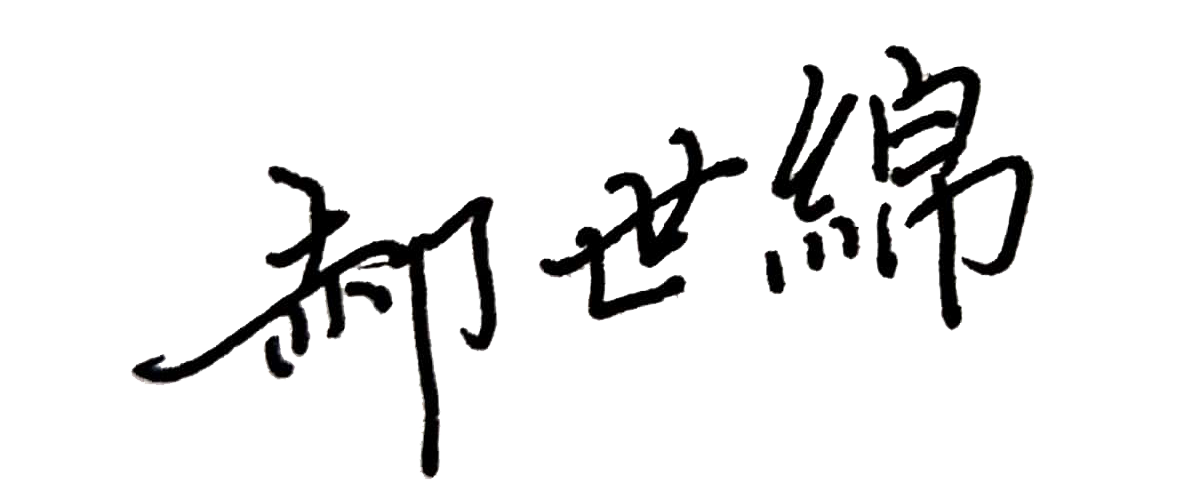 郝世綿